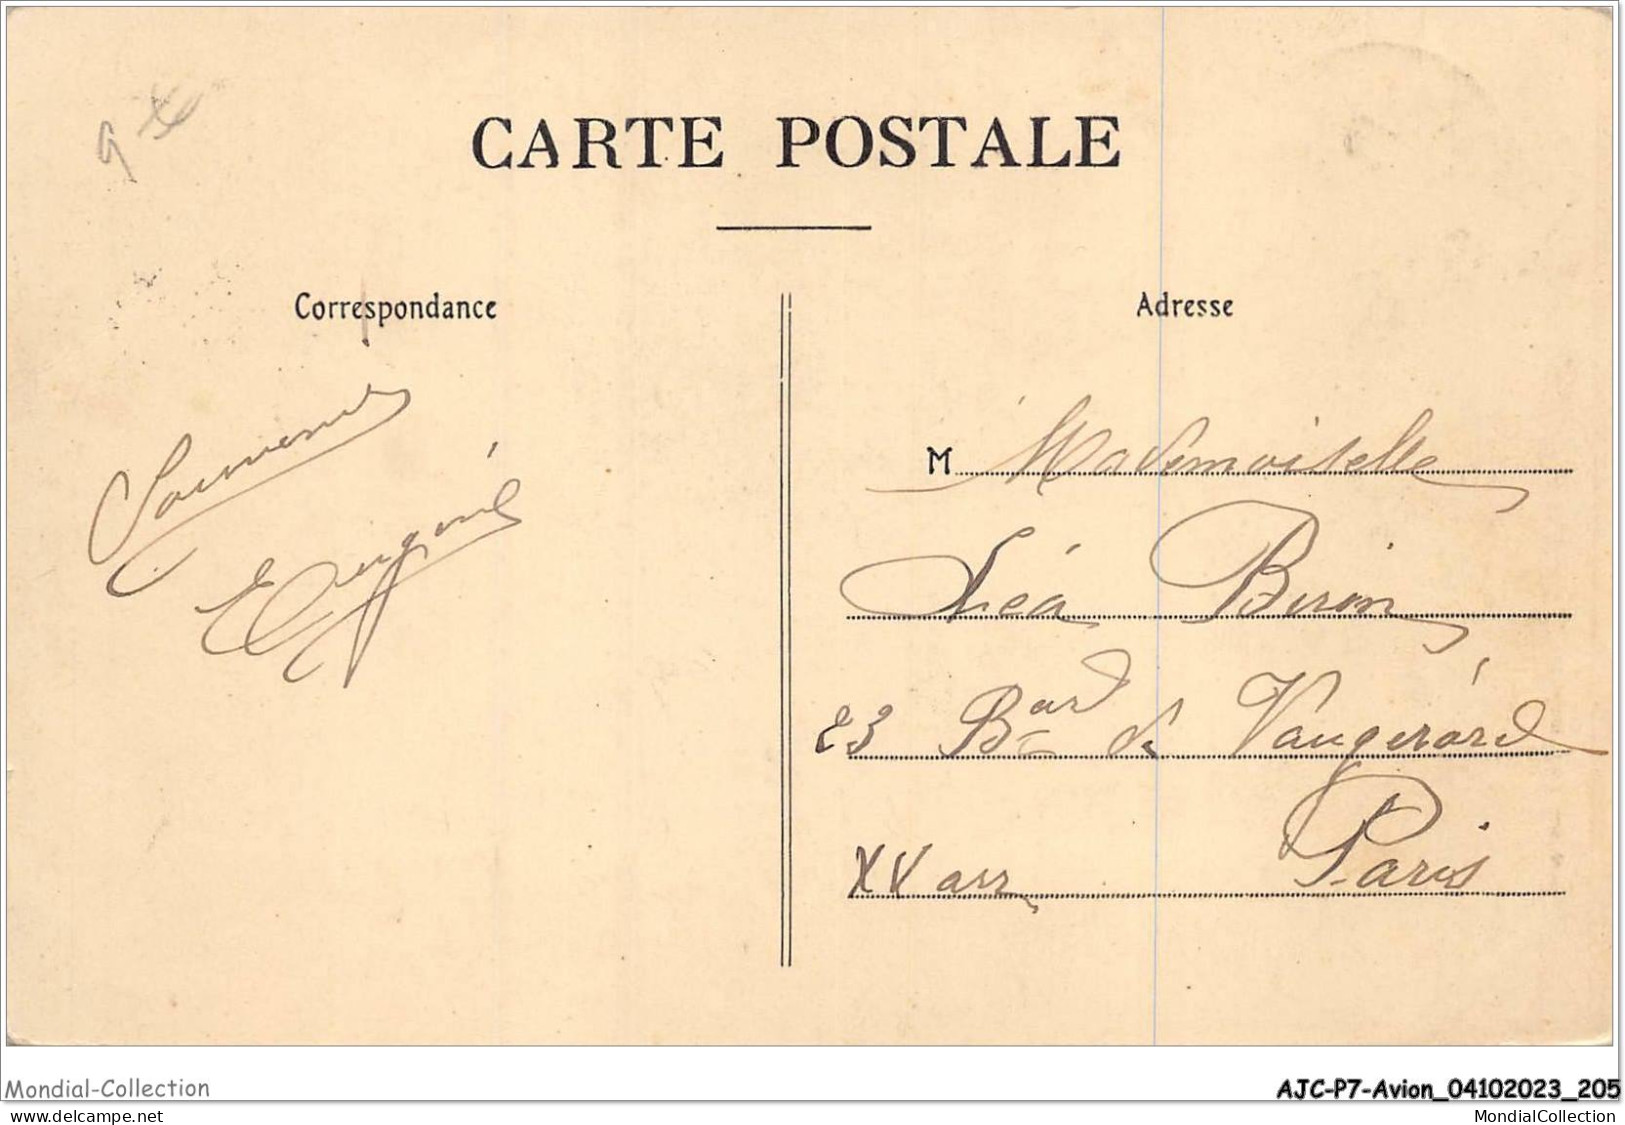 CARTE POSTALE
Correspondance
Souvenir
Eugénie
Adresse
M Mademoiselle
Léa Biron
23 Bard de Vaugirard
XV arr Paris
Mondial-Collection
AJC-P7-Avion_04102023_205
www.delcampe.net
MondialCollection